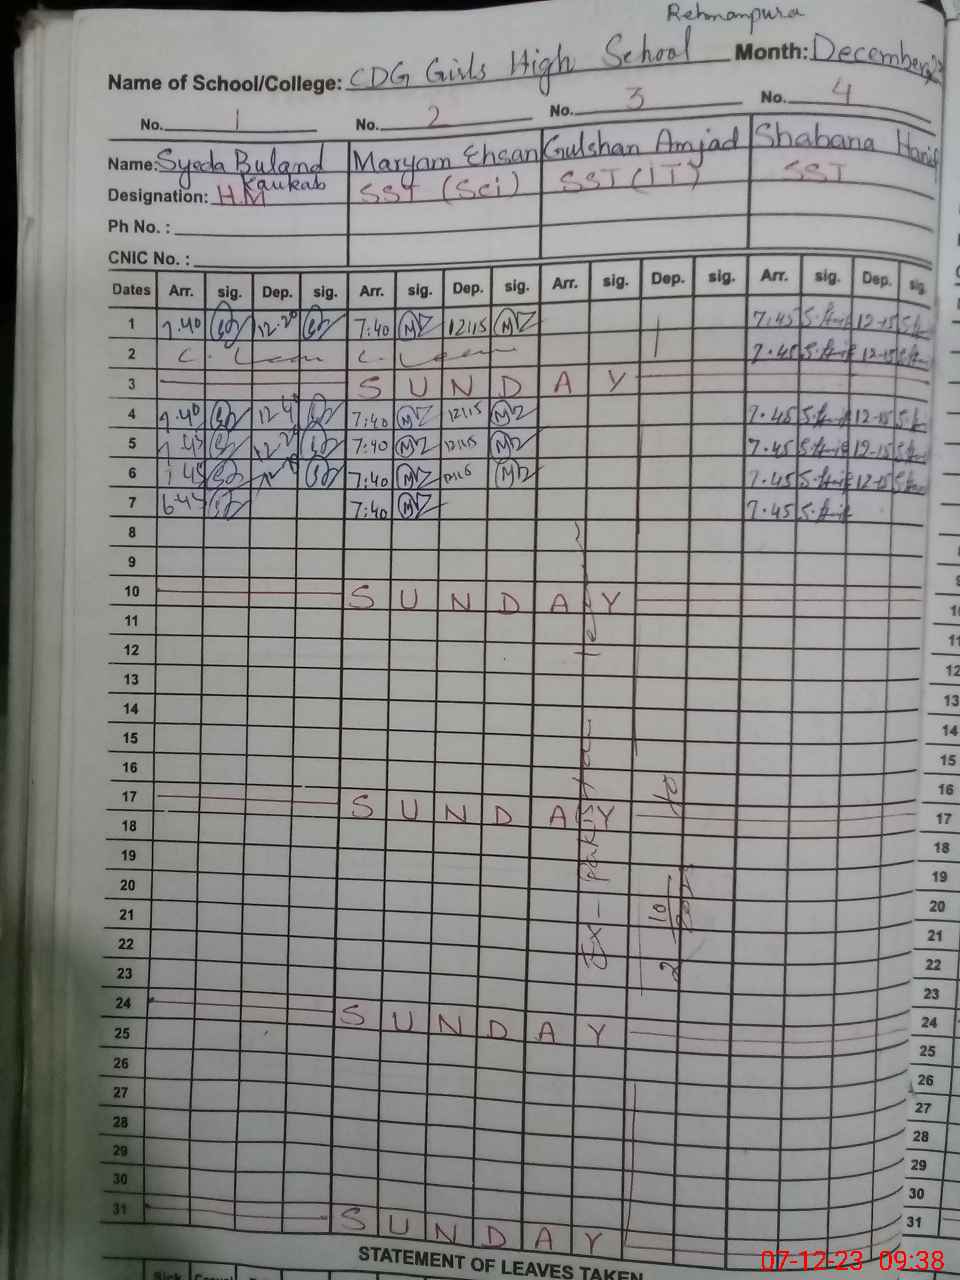 Rehmanpura
Name of School/College: CDG Girls High School Month: December
No. 1 No. 2 No. 3 No. 4
Name: Syeda Buland Kaukab Maryam Ehsan Gulshan Amjad Shabana Hanif
Designation: H.M SST (Sci) SST (IT) SST
Ph No. :
CNIC No. :
Dates Arr. sig. Dep. sig. Arr. sig. Dep. sig. Arr. sig. Dep. sig. Arr. sig. Dep. sig.
1 7.40 12.20 7:40 MZ 12:15 MZ 7.45 12-15
2 C. Leave C. Leave 7.45 12-15
3 SUNDAY
4 7.40 7:40 MZ 12:15 MZ 7.45 12-15
5 7:40 MZ 12:15 MZ 7.45 12-15
6 7:40 MZ 12:15 MZ 7.45 12-15
7 6.45 7:40 MZ 7.45
8
9
10 SUNDAY
11
12
13
14
15
16
17 SUNDAY
18
19
20
21
22
23
24 SUNDAY
25
26
27
28
29
30
31 SUNDAY
Ex-Pakistan leave
2 10/2023 to
STATEMENT OF LEAVES TAKEN
Sick Casual
10
11
12
13
14
15
16
17
18
19
20
21
22
23
24
25
26
27
28
29
30
31
07-12-23 09:38